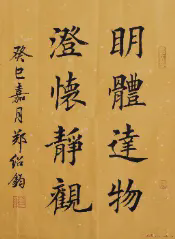 明體達物
澄懷靜觀
癸巳嘉月鄭紹鈞